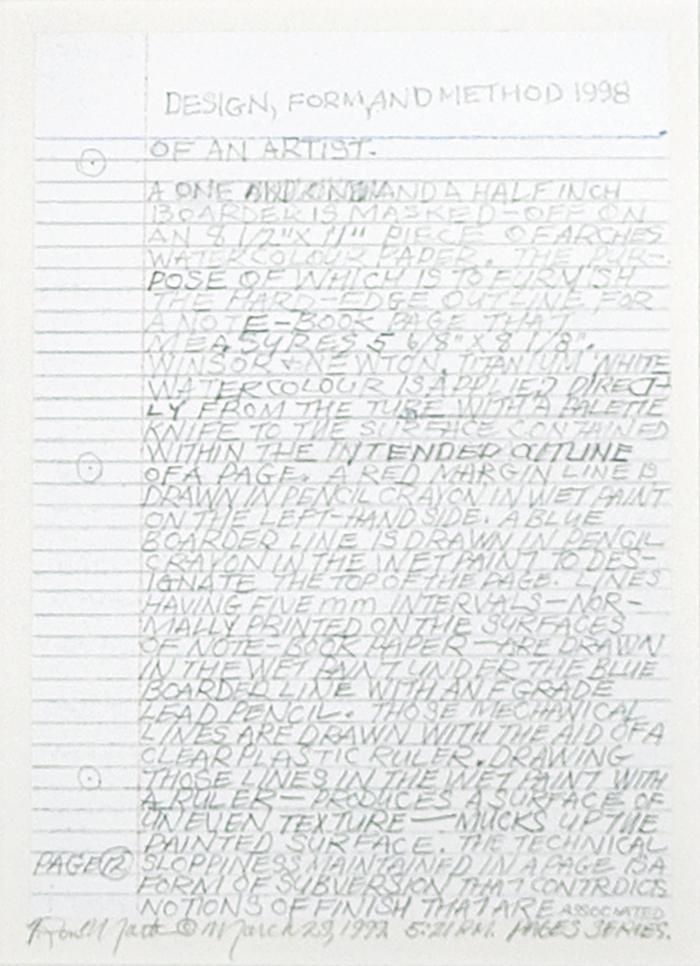 DESIGN, FORM, AND METHOD 1998
OF AN ARTIST.
A ONE AND A HALF INCH
BOARDER IS MASKED-OFF ON
AN 8 1/2" X 11" PIECE OF ARCHES
WATERCOLOUR PAPER. THE PUR-
POSE OF WHICH IS TO FURNISH
THE HARD-EDGE OUTLINE FOR
A NOTE-BOOK PAGE THAT
MEASURES 5 6/8" X 8 1/8".
WINSOR & NEWTON, TITANIUM WHITE
WATERCOLOUR IS APPLIED DIRECT-
LY FROM THE TUBE WITH A PALETTE
KNIFE TO THE SURFACE CONTAINED
WITHIN THE INTENDED OUTLINE
OF A PAGE. A RED MARGIN LINE IS
DRAWN IN PENCIL CRAYON IN WET PAINT
ON THE LEFT-HAND SIDE. A BLUE
BOARDER LINE IS DRAWN IN PENCIL
CRAYON IN THE WET PAINT TO DES-
IGNATE THE TOP OF THE PAGE. LINES
HAVING FIVE mm INTERVALS—NOR-
MALLY PRINTED ON THE SURFACES
OF NOTE-BOOK PAPER—ARE DRAWN
IN THE WET PAINT UNDER THE BLUE
BOARDER LINE WITH AN F GRADE
LEAD PENCIL. THOSE MECHANICAL
LINES ARE DRAWN WITH THE AID OF A
CLEAR PLASTIC RULER. DRAWING
THOSE LINES IN THE WET PAINT WITH
A RULER—PRODUCES A SURFACE OF
UNEVEN TEXTURE—MUCKS UP THE
PAINTED SURFACE. THE TECHNICAL
PAGE 12 SLOPPINESS MAINTAINED IN A PAGE IS A
FORM OF SUBVERSION THAT CONTRDICTS
NOTIONS OF FINISH THAT ARE ASSOCIATED
© March 23, 1992 5:21 P.M. PAGES SERIES.